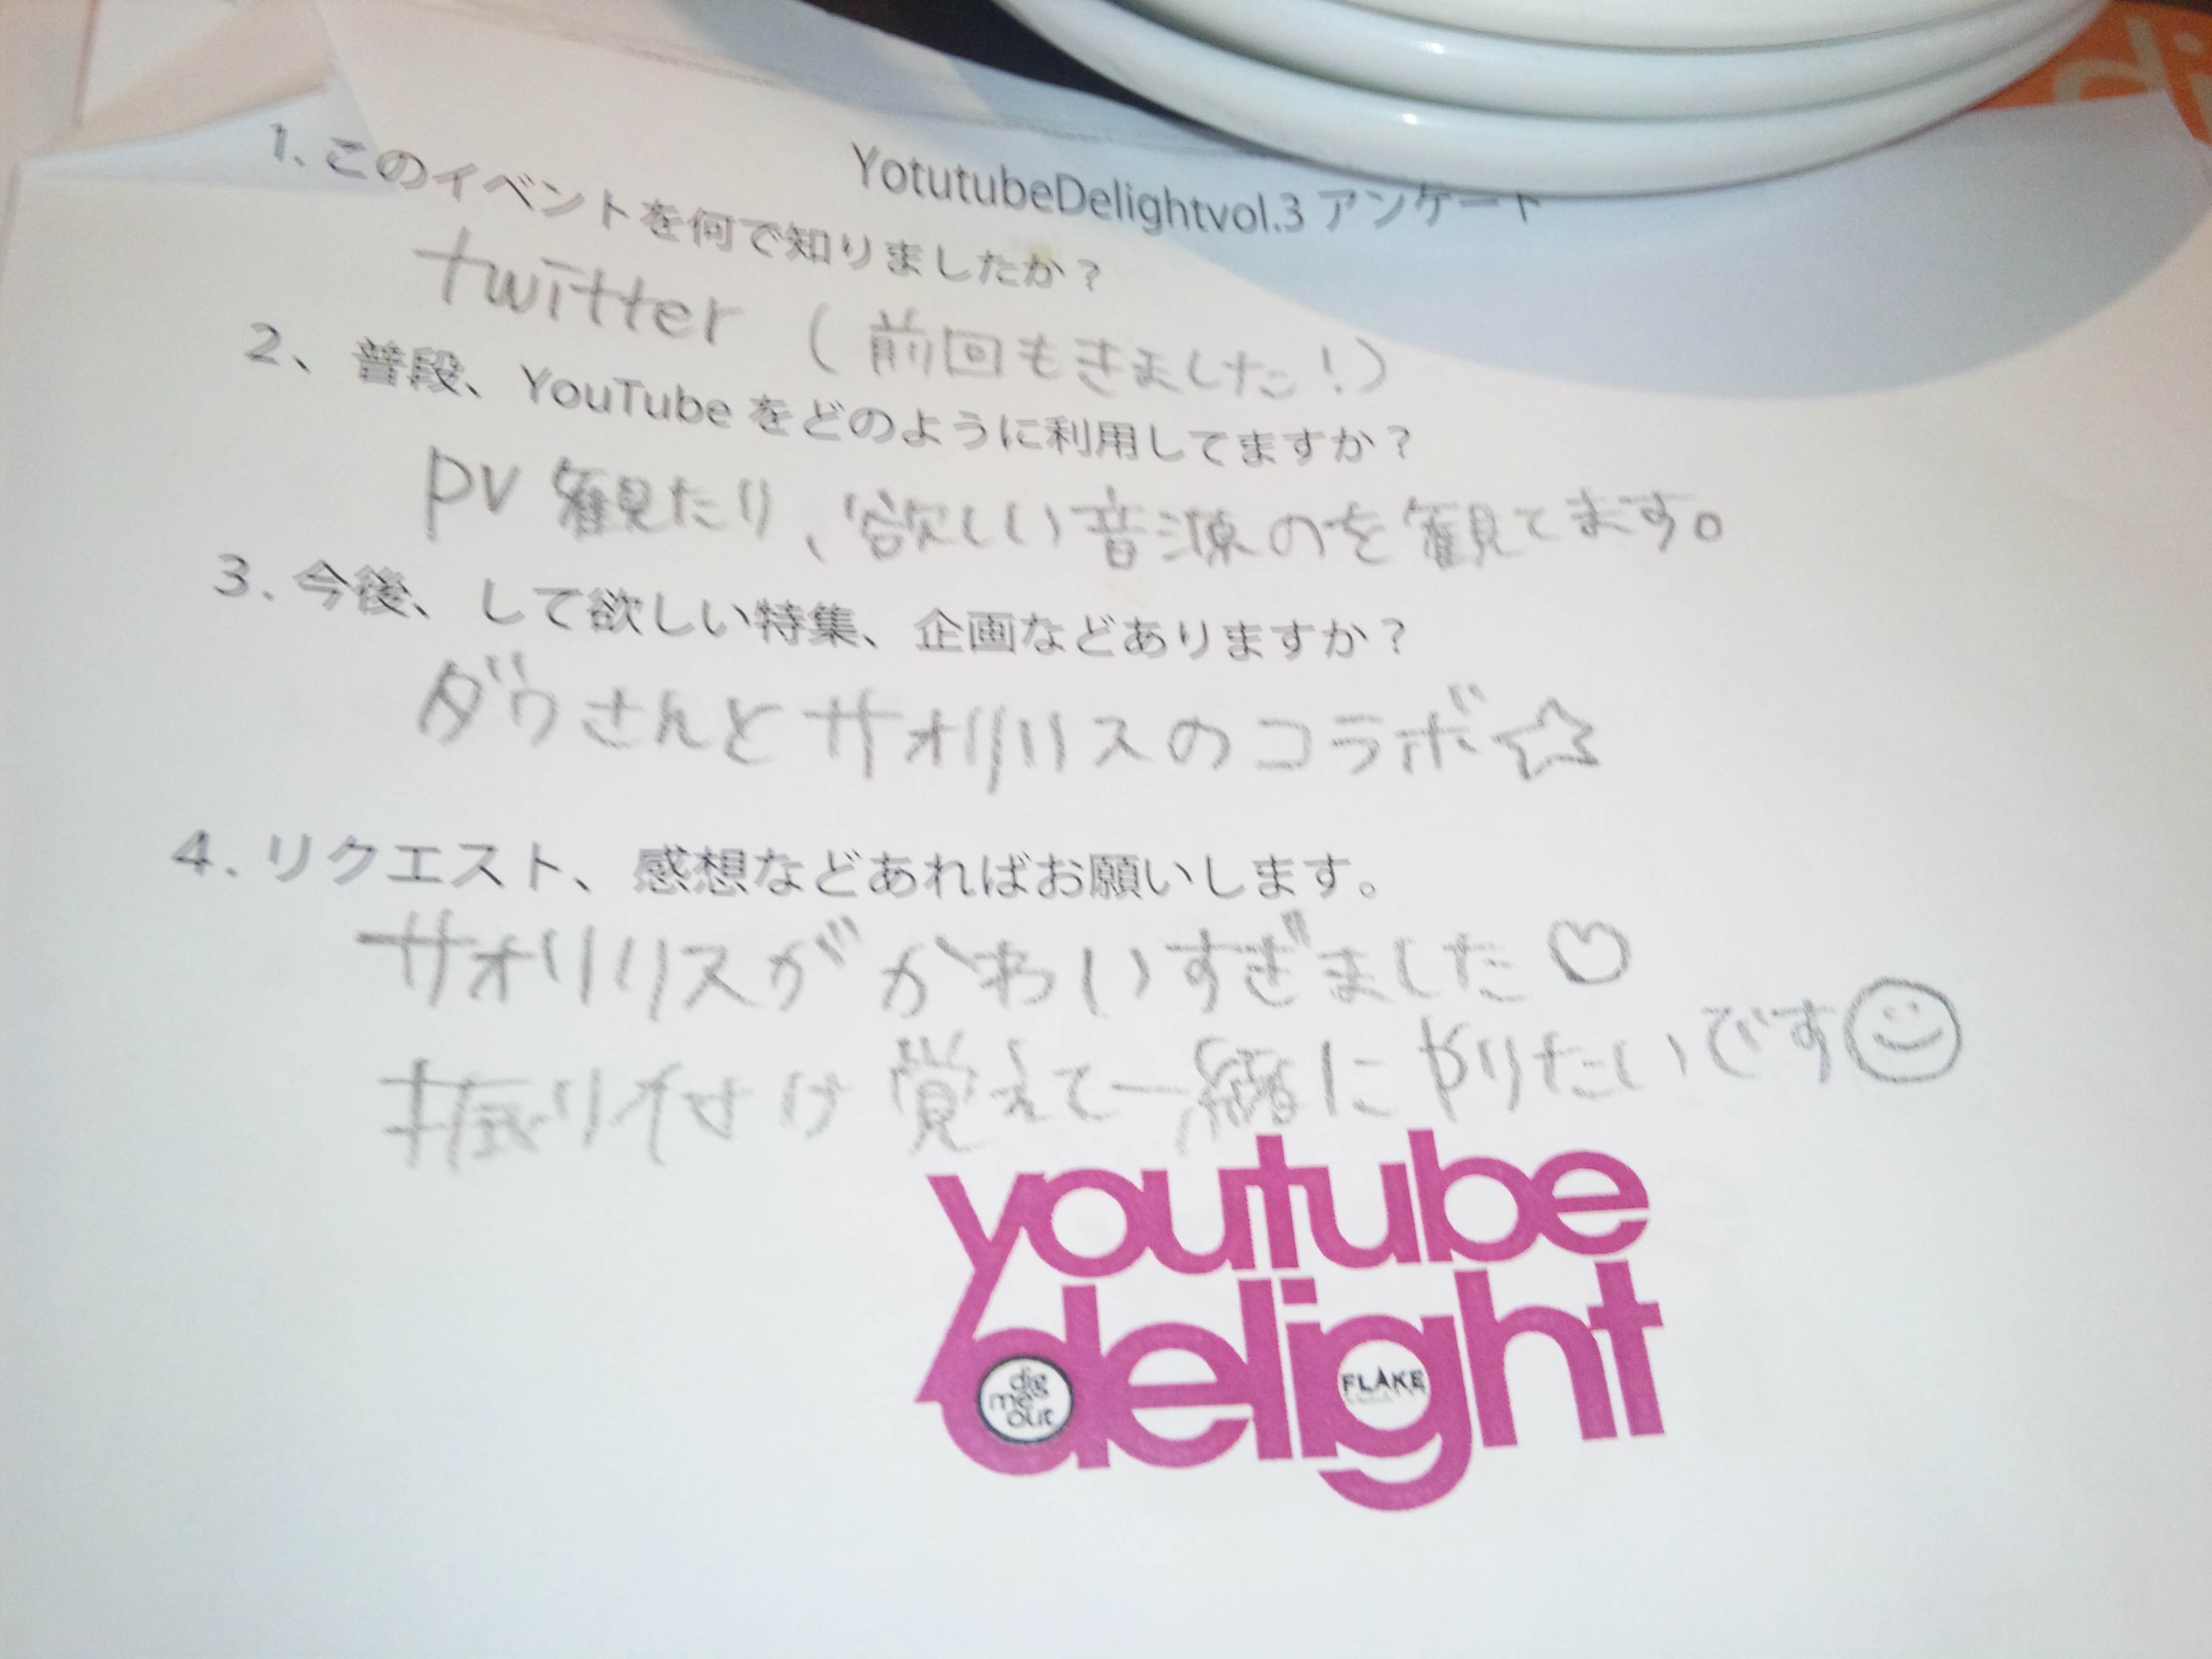 YotutubeDelightvol.3 アンケート
1. このイベントを何で知りましたか？
twitter (前回もきました！)
2、普段、YouTube をどのように利用してますか？
PV 観たり、欲しい音源のを観てます。
3. 今後、して欲しい特集、企画などありますか？
ダヴさんとサオリリスのコラボ☆
4. リクエスト、感想などあればお願いします。
サオリリスがかわいすぎました♡
振り付け覚えて一緒にやりたいです☺
youtube
delight
dig
me
out
FLAKE